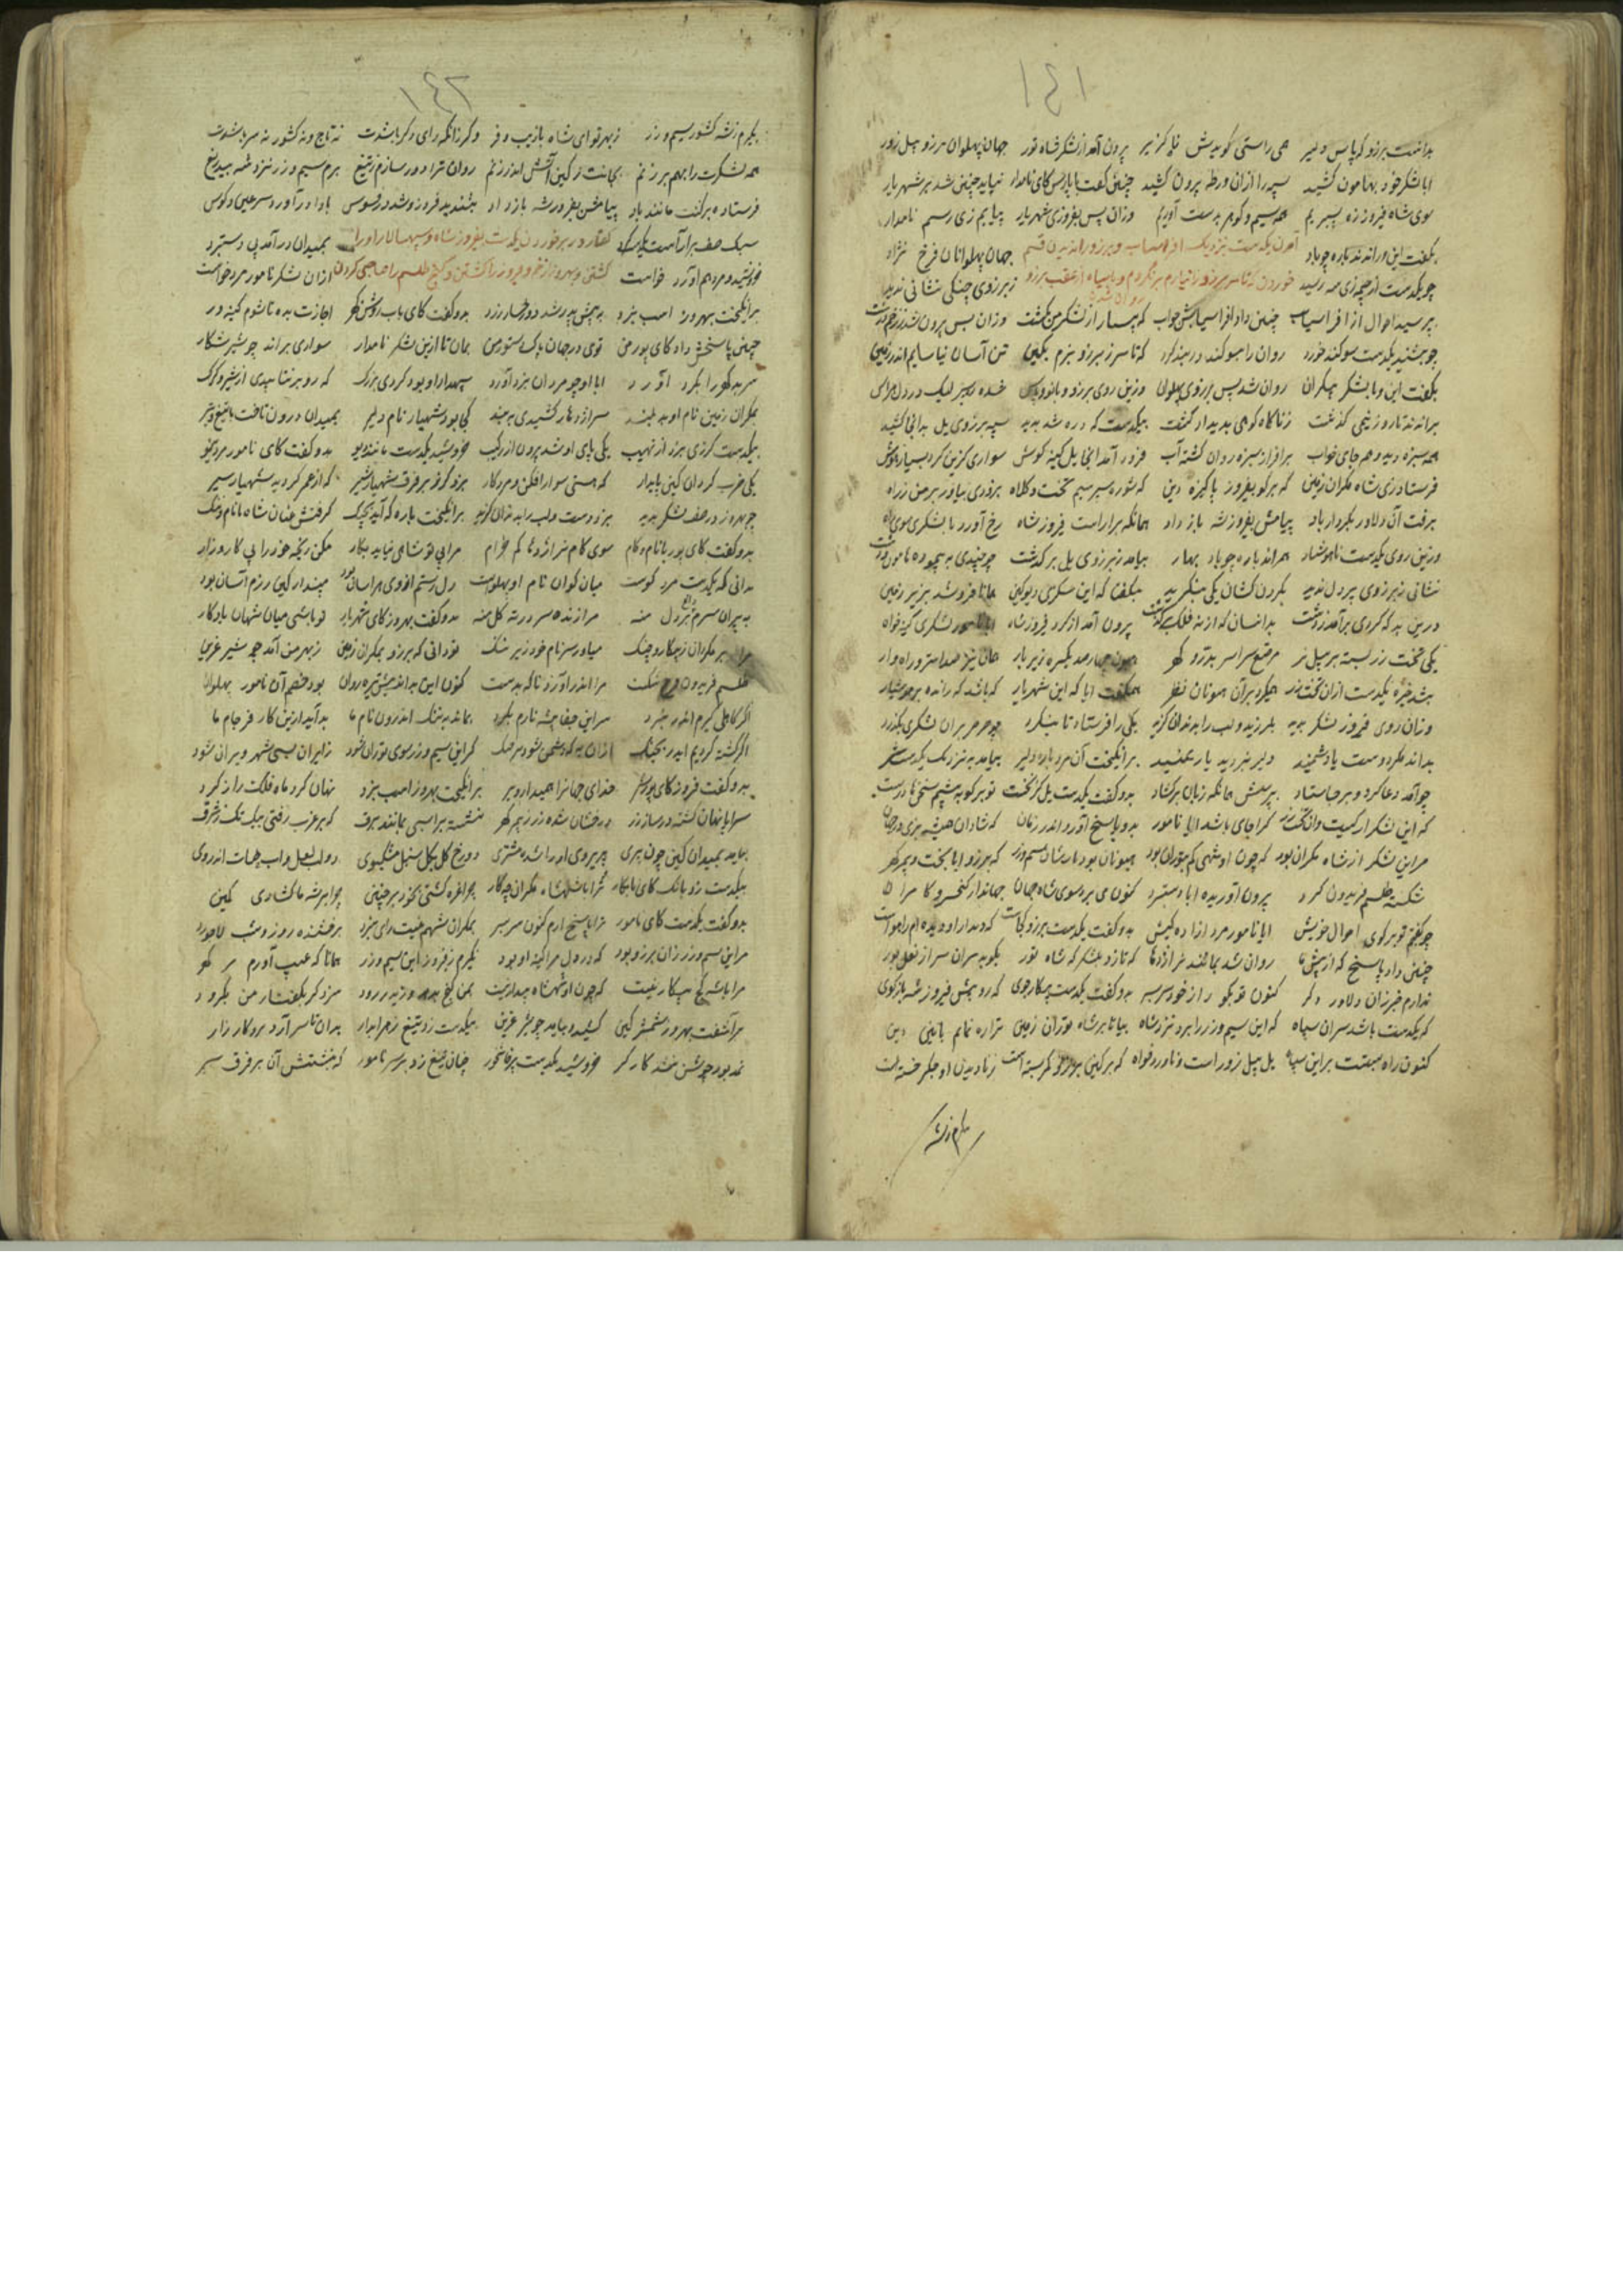 ۱۴۱
بدانست برزو که پاس دلیر همی راستی گویدش ناگزیر برون آمد از لشکر شاه تور جهان پهلوان برزو پیل زور
ابا لشکر خود بهامون کشید سپه را ازان ورطه بیرون کشید چنین گفت با پارس کای نامدار نباید چنین شد بر شهریار
سوی شاه فیروز ره بسپریم همه سیم و گوهر بدست آوریم وزان پس بفیروزی شهریار بیایم زی رستم نامدار
بگفت این و راندند باره چو باد جهان پهلوانان فرخ نژاد
آمدن یکدست نزدیک افراسیاب و برزو را ندیدن قسم
چو یکدست از چه زی سپه رسید ز برزوی جنگی نشانی ندید
خوردن که تا سر برزو را نیارم برنگردم و با سپاه از عقب برزو روان شدن
بپرسید احوال از افراسیاب چنین داد افراسیابش جواب که بسیار از لشکر من بکشت وزان پس برون شد
چو بشنید یکدست سوگند خورد روان را بسوگند در بند کرد که تا سر ز برزو نبرم بکین تن آسان نیاسایم اندر زمین
بگفت این و با لشکر بیکران روان شد پس برزوی پهلوان وزین روی برزو و بانو و پاس
براندند تا روز نیمی گذشت ز ناگاه کوهی پدیدار گشت بیکدست که دره شد پدید سپه برزوی یل بدانجا کشید
همه سبزه دید و هم جای خواب بر افراز سبزه روان گشته آب فرود آمد آنجا یل کینه کوش سواری گزین کرد بسیار هوش
فرستاد زی شاه مکران زمین که برگو بفیروز پاکیزه دین که شو ره سپر سیم تخت و کلاه بزودی بیاور بر من ز راه
برفت آن دلاور بکردار باد پیامش بفیروز شه باز داد همانگه براراست فیروز شاه رخ آورد با لشکری سوی راه
وزین روی یکدست ناهوشیار همی راند باره چو باد بهار بیامد ز برزوی یل برگذشت
نشانی ز برزوی پر دل ندید بگردن کشان یکی بنگرید بگفتا که این سگزی دیو کین همانا فرو شد بزیر زمین
درین بد که گردی برآمد ز دشت بدانسان که از نه فلک برگذشت برون آمد از گرد فیروز شاه لشکری کینه خواه
یکی تخت زر بسته بر پیل نر مرصع سراسر بدر و گهر زیر بار همان نیز صد استر راهوار
بشد خیره یکدست ازان تخت زر همی کرد بر آن هیونان نظر همی گفت آیا که این شهریار که باشد که رانده
وزان روی فیروز لشکر بدید بلرزید و لب را بدندان گزید یکی را فرستاد تا بنگرد
بداند که دوست یا دشمنند برانگیخت آن مرد باره دلیر بیامد بنزدیک یکدست
چو آمد دعا کرد و بر جا ستاد بپرسش همانگه زبان برگشاد بدو گفت یکدست یل کز نخست تو برگو به پیشم سخنها درست
که این لشکر از کیست وان تخت زر کرا جای باشد ایا نامور بدو پاسخ آورد اندر زمان که شادان همیشه بزی در جهان
مر این لشکر از شاه مکران بود که چون او شهی کم بتوران بود هیونان بود بارشان سیم و زر که برزو ابا تخت و بهر گهر
شکسته طلسم فریدون گرد برون آوریده ابا دستبرد کنون می برد سوی شاه جهان جهاندار کیخسرو کامران
چو گفتم تو برگوی احوال خویش ایا نامور مرد آزاده کیش بدو گفت یکدست برزو کجاست که دیدار او دیده ام را هواست
چنین داد پاسخ که از پیش ما روان شد بمانند نر اژدها که تازد بلشکر که شاه تور بکوبد سران سر از نعل بور
ندارم خبر زان دلاور دگر کنون تو بگو راز خود سر بسر بدو گفت یکدست پیکار جوی که رو پیش فیروز شه بازگوی
که یکدست باشد سران سپاه که این سیم و زر را برد نزد شاه بیا تا بر شاه توران زمین ترا ره نمایم بآیین دین
کنون راه بسته است بر این سپاه یل پیل زور است و ناورد خواه که بر کین برزو کمر بسته است
بگیرم ز شه
۱۴۲
بگیرم ز شه کشور سیم و زر ز بهر تو ای شاه بازیب و فر و گر زانکه رای دگر باشدت نه تاج و نه کشور نه سر باشدت
همه لشکرت را بهم بر زنم بجانت ز کین آتش اندر زنم روان ترا دور سازم ز تیغ برم سیم و زر نزد شه بیدریغ
فرستاده برگشت مانند باد پیامش بفیروز شه باز داد بشنید فیروز و شد در فسوس
سبک صف برآراست بمیدان درآمد پی دستبرد
گفتار در بر خوردن یکدست بفیروز شاه و سپهسالار او را
خروشید و مرد هم آورد خواست ازان لشکر نامور مرد خواست
کشتن و بهروز را زخم و فیروز را کشتن و گنج طلسم را صاحبی کردن
برانگیخت بهروز اسب نبرد به پیش پدر شد دو رخسار زرد بدو گفت کای باب روشن گهر اجازت بده تا شوم کینه ور
چنین پاسخش داد کای پور من توی در جهان پاک دستور من بمان تا ازین لشکر نامدار سواری براند چو شیر شکار
سر بد گهر را بگرد آورد ابا او چو مردان نبرد آورد سپهدار او بود گردی بزرگ که رو بر نتابیدی از شیر و گرگ
بمکران زمین نام او بد بلند سر اژدها را کشیدی به بند کجا بود شهیار نام دلیر بمیدان درون تاخت با تیغ و تیر
بیکدست گرزی بزد از نهیب یکی پای او شد برون از رکیب خروشید یکدست مانند دیو بدو گفت کای نامور مرد نیو
یکی ضرب گردان کین پایدار که هستی سوار افکن و مرد کار بزد گرز بر فرق شهیار شیر که از هم گردید شهیار سیر
چو بهروز در صف لشکر بدید بزد دست و لب را بدندان گزید برانگیخت باره که آید بجنگ گرفتش عنان شاه با نام و ننگ
بدو گفت کای پور با نام و کام سوی کام نر اژدها کم خرام مرا بی تو شاهی نیاید بکار مکن رنجه خود را پی کارزار
ندانی که یکدست مرد کوست میان گوان نام او پهلوست دل رستم از وی هراسان بود مپندار کین رزم آسان بود
به پیران سرم داغ بر دل منه مرا زنده سر در ته گل منه بدو گفت بهروز کای شهریار تو باشی میان شهان یادگار
مرا بر مکران ز پیکار و جنگ میاور سر نام خود زیر سنگ تو دانی که برزو بمکران زمین ز بهر من آمد چو شیر عرین
طلسم فریدون فرخ شکست مرا اندر آورد ناگه بدست کنون این بداندیش تیره روان بود خصم آن نامور پهلوان
اگر کاهلی گیرم اندر نبرد سر این جفا پیشه نارم بگرد بماند به ننگ اندرون نام ما بد آید ازین کار فرجام ما
اگر کشته گردیم ایدر بجنگ ازان به که دشمن شود گر این سیم و زر سوی توران شود ز ایران بسی شهر ویران شود
بدو گفت فیروز کای پور خدای جهان را همی دار و بر برانگیخت بهروز اسب نبرد نهان کرد ماه فلک را ز گرد
سراپا نهان گشته در ساز زر درخشان شده زر ز بهر گهر نشسته بر اسبی بمانند برف که بر غرب رفتی بیک تک ز شرق
بیامد بمیدان کین چون پری پریروی او را شده مشتری دو رخ گل بگل سنبل مشکبوی دو لب لعل و آب حیات اندروی
بیکدست زد بانگ کای نابکار ترا با شهنشاه مکران چه کار چرا غره گشتی بخود بر چنین چرا بر شه ما گشادی کمین
بدو گفت یکدست کای نامور ترا پاسخ آرم کنون سر بسر بمکران شهم نیست رای نبرد برخشنده روز و شب لاجورد
مر این سیم و زر زان برزو بود که در دل مرا کینه او بود بگیرم ز فیروز این سیم و زر همانا که عیب آورم در گهر
مرا با شه گنج پیکار نیست که چون او شهنشاه بیدار نیست سزد گر بگفتار من بگرود
برآشفت بهروز شمشیر کین کشید و بیامد چو شیر عرین بیکدست زد تیغ زهر آبدار بدان تا سر آرد برو کارزار
نمد بود جوشن نشد کارگر خروشید یکدست پرخاشخر چنان تیغ زد بر سر نامور